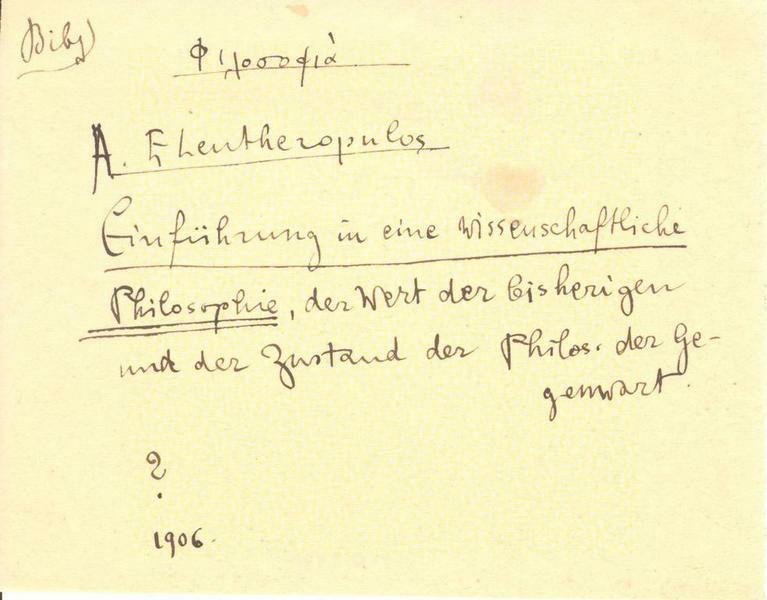 Φιλοσοφιὰ
A. Eleutheropulos
Einführung in eine wissenschaftliche
Philosophie, der Wert der bisherigen
und der Zustand der Philos. der Ge-
genwart.
?
1906.